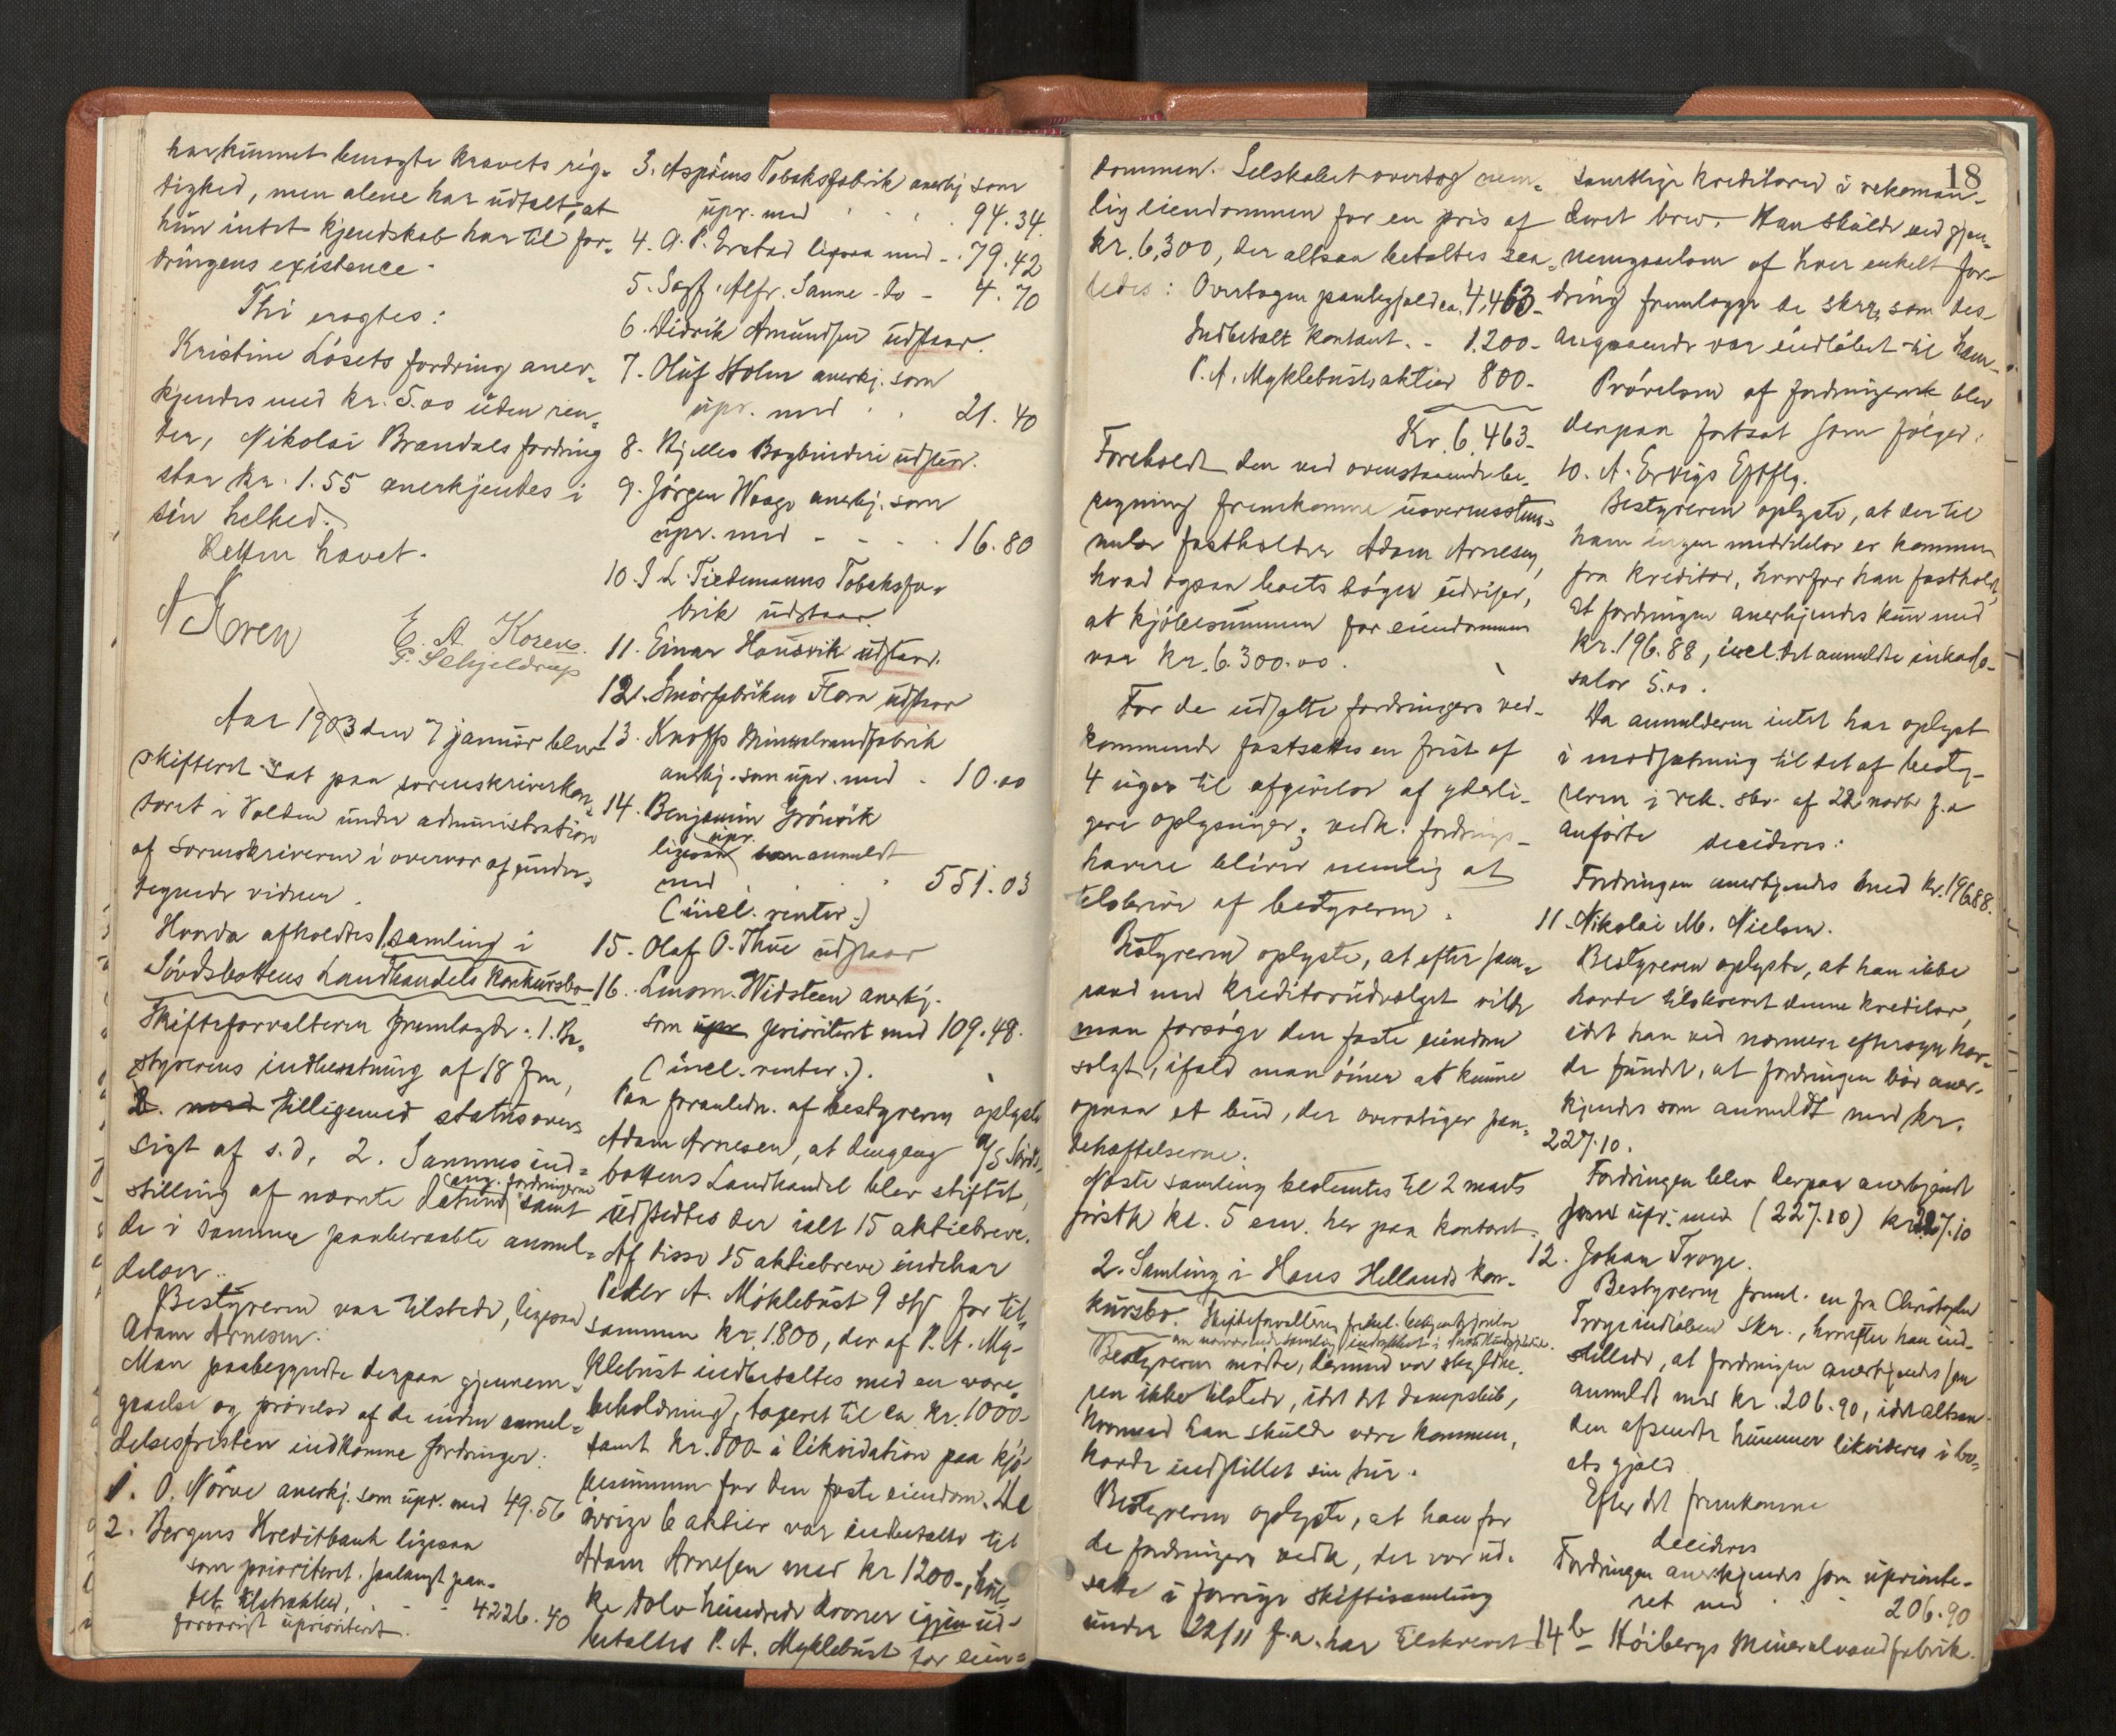 har kunnet benegte kravets rig-
tighed, men alene har udtalt, at
hun intet kjendskab har til for-
dringens existence.
Thi eragtes:
Kristine Løsets fordring aner-
kjendes med kr. 5.00 uden ren-
ter, Nikolai Brandals fordring
stor kr. 1.55 anerkjendes i
sin helhed.
Retten hævet.
Koren
E. A. Koren.
P. Schjeldrup
Aar 1903 den 7 januar blev
skifteret sat paa sorenskriverkon-
toret i Volden under administration
af sorenskriveren i overvær af under-
tegnede vidner.
Hvorda afholdtes 1. samling i
Søvdsbottens Landhandels konkursbo
Skifteforvalteren fremlagde: 1. Be-
styrerens indberetning af 18 f.m.,
tilligemed statusover-
sigt af s.d., 2. Sammes ind-
stilling af nævnte datum ang. fordringerne samt
de i samme paaberaabte anmel-
delser.
Bestyreren var tilstede, ligesaa
Adam Arnesen.
Man paabegyndte derpaa gjennem-
gaaelse og prøvelse af de inden anmel-
delsesfristen indkomne fordringer:
1. O. Nørve anerkj. som upr. med 49.56
2. Bergens Kreditbank ligesaa
som prioriteret, saalangt pan-
tet tilstrækker,
forøvrigt uprioriteret. 4226.40
3. Aspöens Tobaksfabrik anerkj som
upr. med 94.34.
4. O. P. Erstad ligesaa med - 79.42
5. Sagf. Alfr. Sanne - do - 4.70
6. Didrik Amundsen udstaar.
7. Oluf Holm anerkj. som
upr. med 21.40
8. Bogbinderi udstaar.
9. Jørgen Waage anerkj. som
upr. med - - - 16.80
10. J. L. Tiedemanns Tobaksfa-
brik udstaar.
11. Einar Housvik udstaar.
12. Smørfabriken Flora udstaar
13. Knoffs Mineralvandfabrik
anerkj. som upr. med - 10.00
14. Benjamin Grönvik
ligesaa upr. som anmeldt
med 551.03
(incl. renter.)
15. Olaf O. Thue udstaar
16. Lensm. Widsteen anerkj.
som upr prioriteret med 109.48.
(incl. renter.).
Paa foranledn. af bestyreren oplyste
Adam Arnesen, at dengang A/S Søvds-
bottens Landhandel blev stiftet,
udstedtes der ialt 15 aktiebreve.
Af disse 15 aktiebreve indehar
Peder A. Møklebust 9 stkr for til-
sammen kr. 1.800, der af P. A. My-
klebust indbetaltes med en vare-
beholdning, taxeret til ca kr. 1000-
samt kr. 800- i likvidation paa kjø-
besummen for den faste eiendom. De
øvrige 6 aktier var indbetalte til
Adam Arnesen med kr 1200-, hvil-
ke tolv hundrede kroner igjen ud-
betaltes P. A. Myklebust for eien-
18
dommen. Selskabet overtog nem-
lig eiendommen for en pris af
kr. 6,300, der altsaa betaltes saa-
ledes: Overtagen pantegjæld ca. 4,463-
Indbetalt kontant. - 1.200-
P. A. Myklebusts aktier 800-
Kr. 6.463-
Foreholdt den ved ovenstaaende be-
regning fremkomne uoverensstem-
melse fastholder Adam Arnesen,
hvad ogsaa boets bøger udviser,
at kjøbesummen for eiendommen
var kr. 6.300.00.
For de udsatte fordringers ved-
kommende fastsattes en frist af
4 uger til afgivelse af yderli-
gere oplysninger; vedk. fordrings-
havere bliver nemlig at
tilskrive af bestyreren.
Bestyreren oplyste, at efter sam-
raad med kreditorudvalget vilde
man forsøge den faste eiendom
solgt, ifald man øiner at kunne
opnaa et bud, der overstiger pan-
tehæftelserne.
Næste samling bestemtes til 2 marts
førstk kl. 5 em. her paa kontoret.
2. Samling i Hans Hellands kon-
kursbo. Skifteforvalteren
Bestyreren mødte, derimod var skyldne-
ren ikke tilstede, idet det dampskib,
hvormed han skulde være kommen,
havde indstillet sin tur.
Bestyreren oplyste, at han for
de fordringers vedk., der var ud-
satte i forrige skiftesamling
under 22/11 f.a. har tilskrevet
samtlige kreditorer i rekoman-
deret brev. Han skulde ved gjen-
nemgaaelsen af hver enkelt for-
dring fremlægge de skr., som des-
angaaende var indløbet til ham.
Prøvelsen af fordringerne blev
derpaa fortsat som følger:
10. A. Ervigs Eftflg.
Bestyreren oplyste, at der til
ham ingen meddelelse er kommen
fra kreditor, hvorfor han fastholdt,
at fordringen anerkjendes kun med
kr. 196.88, incl. det anmeldte inkasso-
salær 5.00.
Da anmelderen intet har oplyst
i modsætning til det af besty-
reren i rek. skr. af 22 novbr f.a
anførte decideres:
Fordringen anerkjendes med kr. 196.88.
11. Nikolai M. Nielsen.
Bestyreren oplyste, at han ikke
havde tilskrevet denne kreditor,
idet han ved nærmere eftersyn hav-
de fundet, at fordringen bør aner-
kjendes som anmeldt med kr.
227.10.
Fordringen blev derpaa anerkjendt
som upr. med (227.10) kr 227.10
12. Johan Troye.
Bestyreren freml. en fra Christopher
Troye indløben skr., hvorefter han ind-
stillede, at fordringen anerkjendes som
anmeldt med kr. 206.90, idet altsaa
den afsendte hummer likvideres i bo-
ets gjæld
Efter det fremkomne
decideres
Fordringen anerkjendes som upriorite-
ret med 206.90
14 b - Höibergs Mineralvandfabrik.